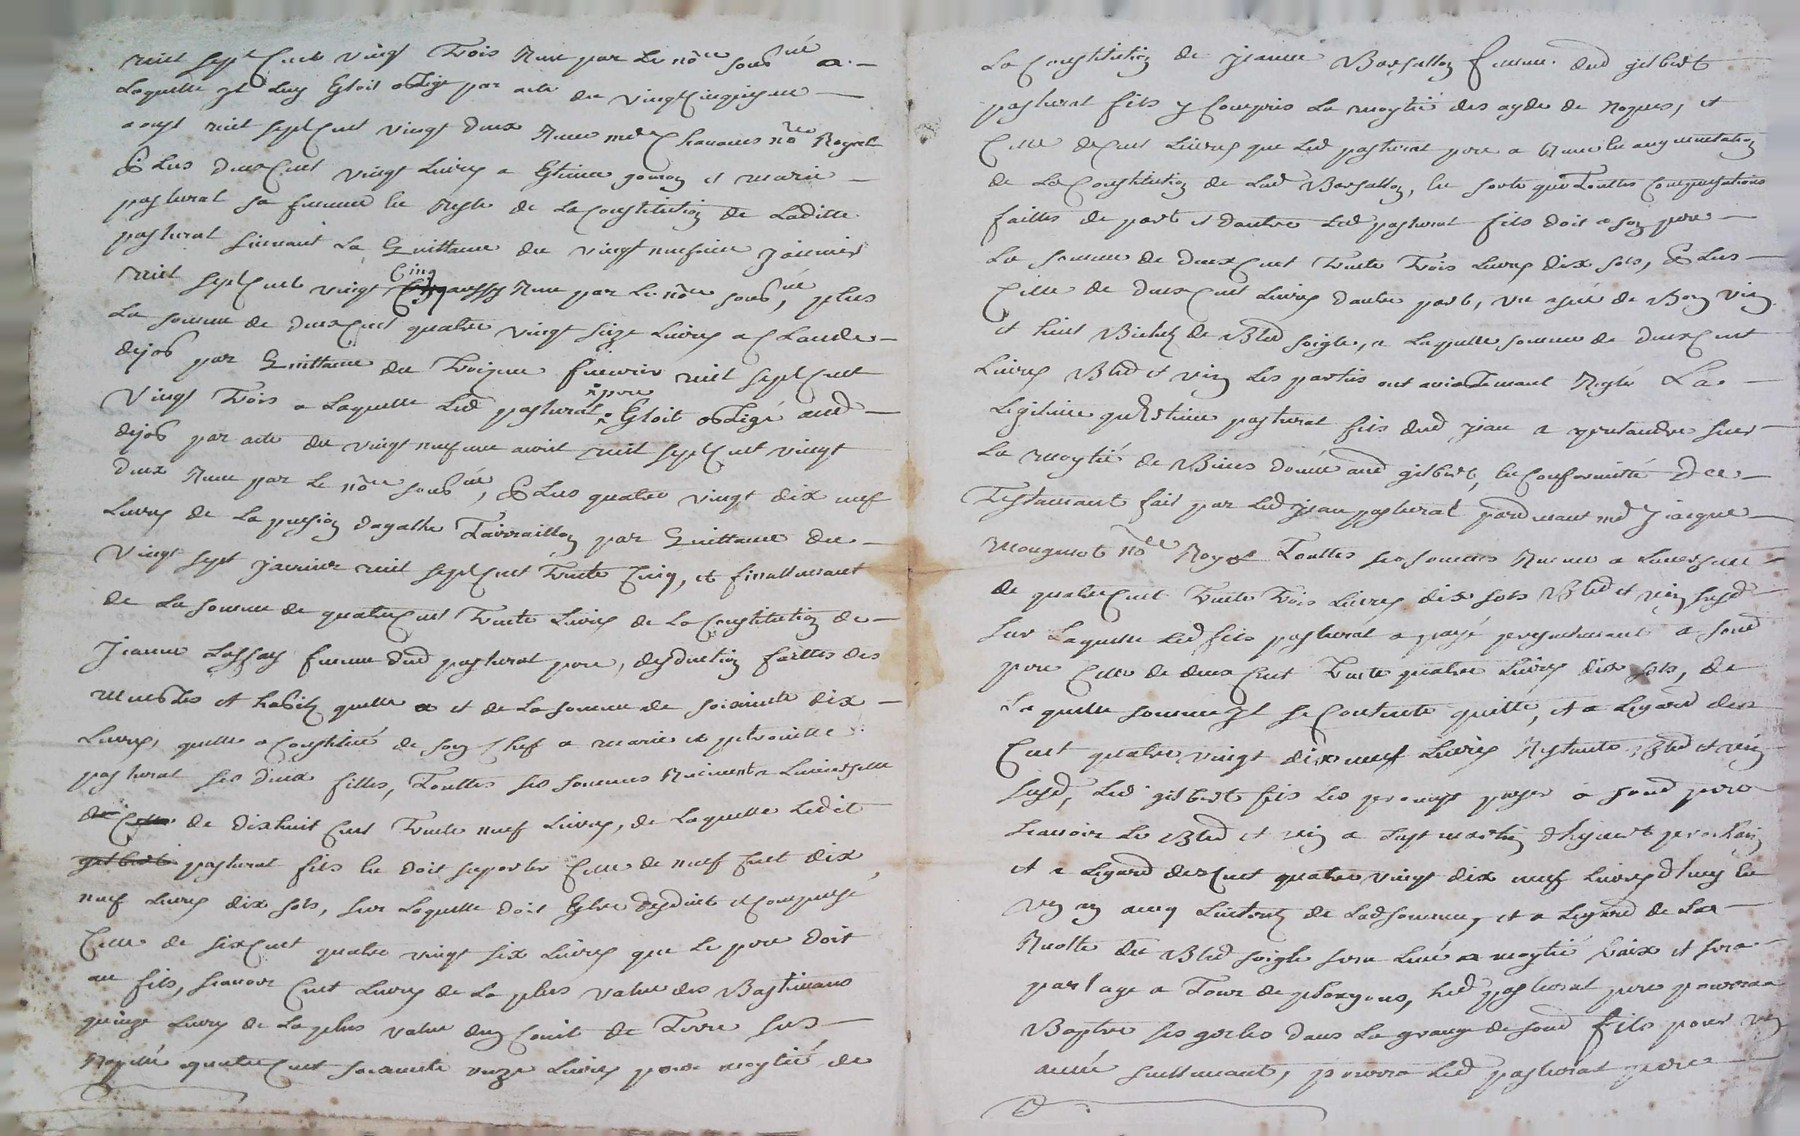 mil sept Cent vingt Trois Receu par le no.re soub.né a
Laquelle yl luy Estoit obligé par acte du vingt Cinquiesme
aoust mil sept Cent vingt deux Receu m.e no.re Royal
Plus deux Cent vingt Livres a Estienne et marie
pasturat sa femme En Reste de La Constitution de Laditte
pasturat suivant La Quittance du vingt neufieme Janvier
mil sept Cent vingt Cinq Receu par Le no.re soub.né, plus
La somme de deux Cent quatre vingt seize Livres a Claude
dejob par Quittance du Troizme fevrier mil sept Cent
Vingt Trois a Laquelle Led pasturat père Estoit obligé aud
dejob par acte du vingt neufieme avril mil sept Cent vingt
deux Receu par Le no.re soub.né, Plus quatre vingt dix neuf
Livres de La pension dagathe par Quittance du
Vingt sept Janvier mil sept Cent Trente Cinq, et finallement
de La somme de quatre Cent Trente Livres de La Constitution de
Jeanne femme dud pasturat pere, desduction faittes des
meubles et habits quelle a et de La somme de soixante dix
Livres, quelle a Constitué de son Chef a marie et petronille
pasturat ses deux filles, Touttes ses sommes Reviennent a
de dixhuit Cent Trente neuf Livres, de Laquelle Ledit
pasturat fils En doit suporter Celle de neuf Cent dix
neuf Livres dix sols, sur Laquelle doit Estre desduit et Compensé
Celle de six Cent quatre vingt six Livres que Le pere doit
au fils, scavoir Cent Livres de La plus value des Bastimans
quinze Livres de La plus value dun de Terre sus
quatre Cent soixante unze Livres pour moytié de
La Constitution de Jeanne Barsallon femme dud gilbert
pasturat fils y Compris La moytié des ayde de nopces, et
Celle de Cent Livres que Led pasturat pere a En augmentation
de La Constitution de Lad Barsallon, En sorte que Touttes Compensations
faittes de part et dautre Led pasturat fils doit a son pere
La somme de deux Cent Trente Trois Livres dix sols, Plus
Celle de deux Cent Livres dautre part, un de Bon vin
et huit Bichets de Bled soigle, a Laquelle somme de deux Cent
Livres Bled et vin Les parties ont Reglé La
Legitime qu'Estienne pasturat fils dud Jean a pretandre sur
La moytié de Biens donné aud gilbert, En Conformitté du
Testament fait par Led Jean pasturat pardevant me Jacque
no.re Royal Touttes ses sommes
de quatre Cent Trente Trois Livres dix sols Bled et vin susd
sur Laquelle Led fils pasturat a payé a sond
pere Celle de deux Cent Trente quatre Livres dix sols, de
Laquelle somme yl se Contente quitte, et a Legard des
Cent quatre vingt dix neuf Livres Restante, Bled et vin
susd, Led gilbert fils Les promis payer a sond pere
scavoir Le Bled et vin a sept martin prochain
et a Legard des Cent quatre vingt dix neuf Livres
un an avec de Lad somme, et a Legard de La
Recolte du Bled soigle sera Levé a moytié fraix et sera
partagé a Tour de, Led pasturat pere pourra
Battre ses gerbes dans La grange de sond fils pour un
année seullement, pourra Led pasturat pere